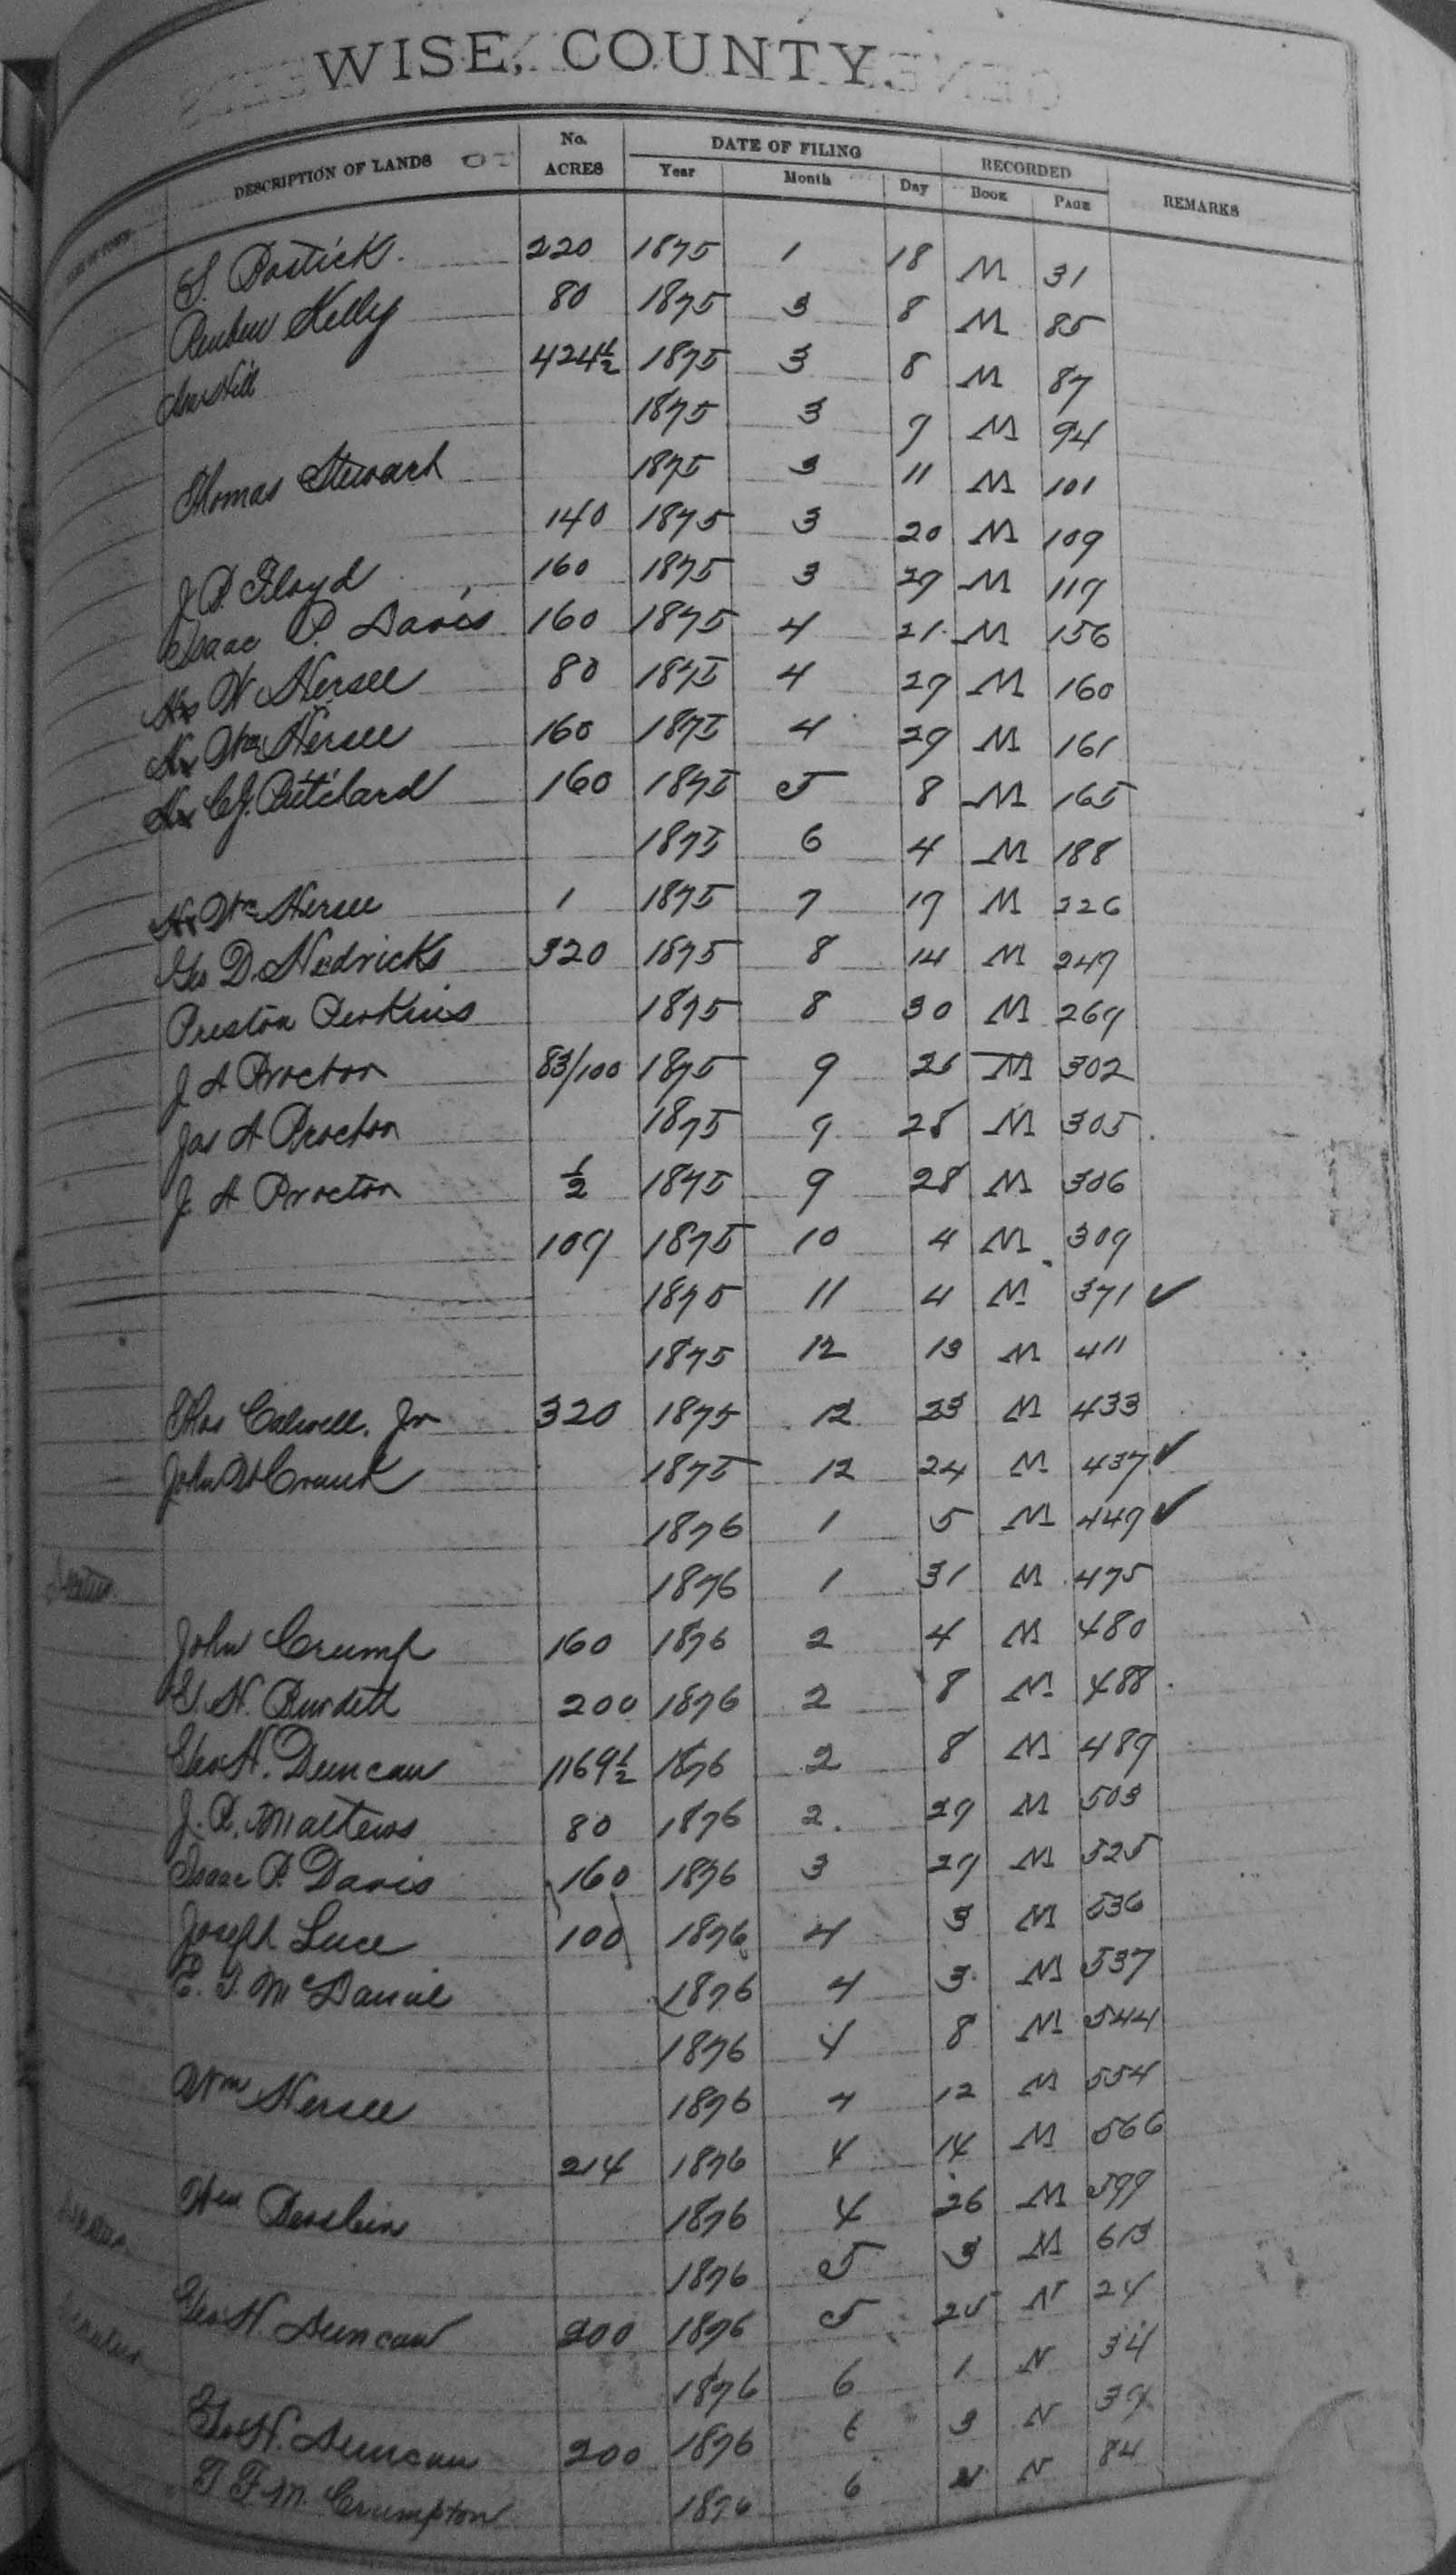 WISE COUNTY.
DESCRIPTION OF LANDS No. ACRES DATE OF FILING Year Month Day RECORDED Book Page REMARKS
S. Bostick. 220 1875 1 18 M 31
Reuben Kelly 80 1875 3 8 M 85
424½ 1875 3 8 M 87
1875 3 9 M 94
Thomas Stewart 1875 3 11 M 101
140 1875 3 20 M 109
J. P. Floyd 160 1875 3 29 M 117
Isaac P. Davis 160 1875 4 21 M 156
W Hersee 80 1875 4 29 M 160
Wm Hersee 160 1875 4 29 M 161
C. J. Pritchard 160 1875 5 8 M 165
1875 6 4 M 188
Wm Hersee 1 1875 7 17 M 226
Geo D. Hedricks 320 1875 8 14 M 247
Preston Perkins 1875 8 30 M 269
J A Proctor 83/100 1875 9 M 302
Jas A Proctor 1875 9 28 M 305
J. A Proctor ½ 1875 9 28 M 306
109 1875 10 4 M 309
1875 11 4 M 371 ✓
1875 12 13 M 411
Thos Calwell. Jr 320 1875 12 23 M 433
John W Crank 1875 12 24 M 437 ✓
1876 1 5 M 449 ✓
1876 1 31 M 475
John Crump 160 1876 2 4 M 480
G. H. Burdett 200 1876 2 8 M 488
Geo H. Duncan 1169½ 1876 2 8 M 489
J. P. Mathews 80 1876 2 29 M 503
Isaac P. Davis 160 1876 3 29 M 525
Joseph Luce 100 1876 4 3 M 536
E. T. McDaniel 1876 4 3 M 537
1876 4 8 M 544
Wm Hersee 1876 4 12 M 554
214 1876 4 14 M 566
Wm 1876 4 26 M 599
1876 5 3 M 613
Geo H Duncan 200 1876 5 25 N 24
1876 6 1 N 34
Geo H. Duncan 200 1876 6 3 N 39
T F M. Crumpton 1876 6 N 84